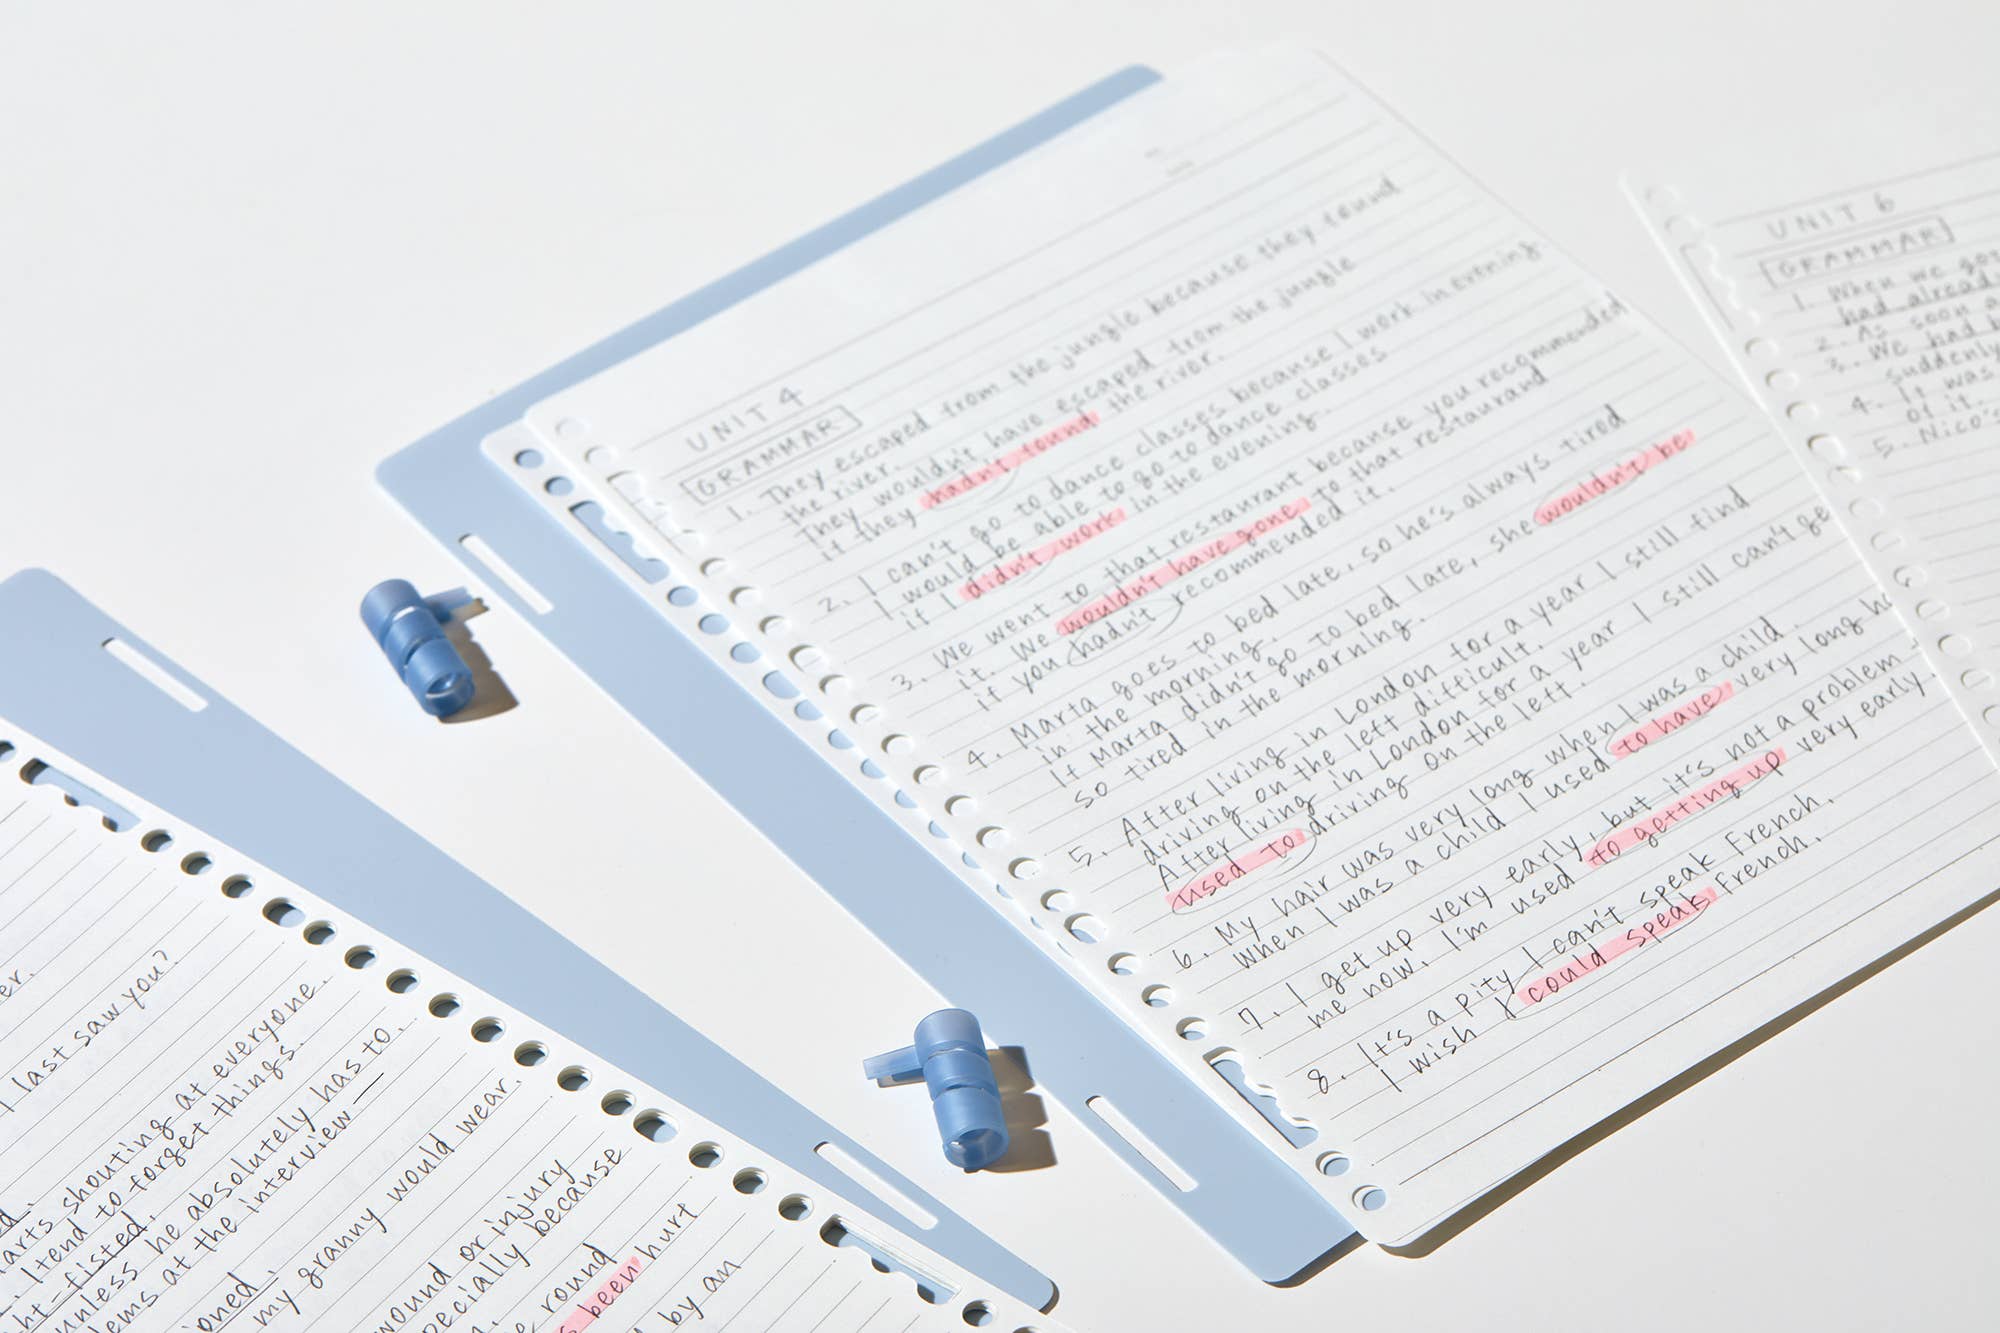 UNIT 4
GRAMMAR
1. They escaped from the jungle because they found
the river.
They wouldn't have escaped from the jungle
if they hadn't found the river.
2. I can't go to dance classes because I work in evening.
I would be able to go to dance classes
if I didn't work in the evening.
3. We went to that restaurant because you recommended
it. We wouldn't have gone to that restaurand
if you hadn't recommended it.
4. Marta goes to bed late, so he's always tired
in the morning.
If Marta didn't go to bed late, she wouldn't be
so tired in the morning.
5. After living in London for a year I still find
driving on the left difficult.
After living in London for a year I still can't ge
used to driving on the left.
6. My hair was very long when I was a child.
When I was a child I used to have very long ha
7. I get up very early, but it's not a problem -
me now. I'm used to getting up very early.
8. It's a pity I can't speak French.
I wish I could speak French.
UNIT 6
GRAMMAR
1. When we got
had alread
2. As soon a
3. We had b
suddenly
4. It was
of it.
5. Nico's
er.
I last saw you?
d.
arts shouting at everyone.
. I tend to forget things.
ht-fisted.
unless he absolutely has to.
lems at the interview —
ioned.
my granny would wear.
wound or injury
pecially because
e round
s been hurt
d by an